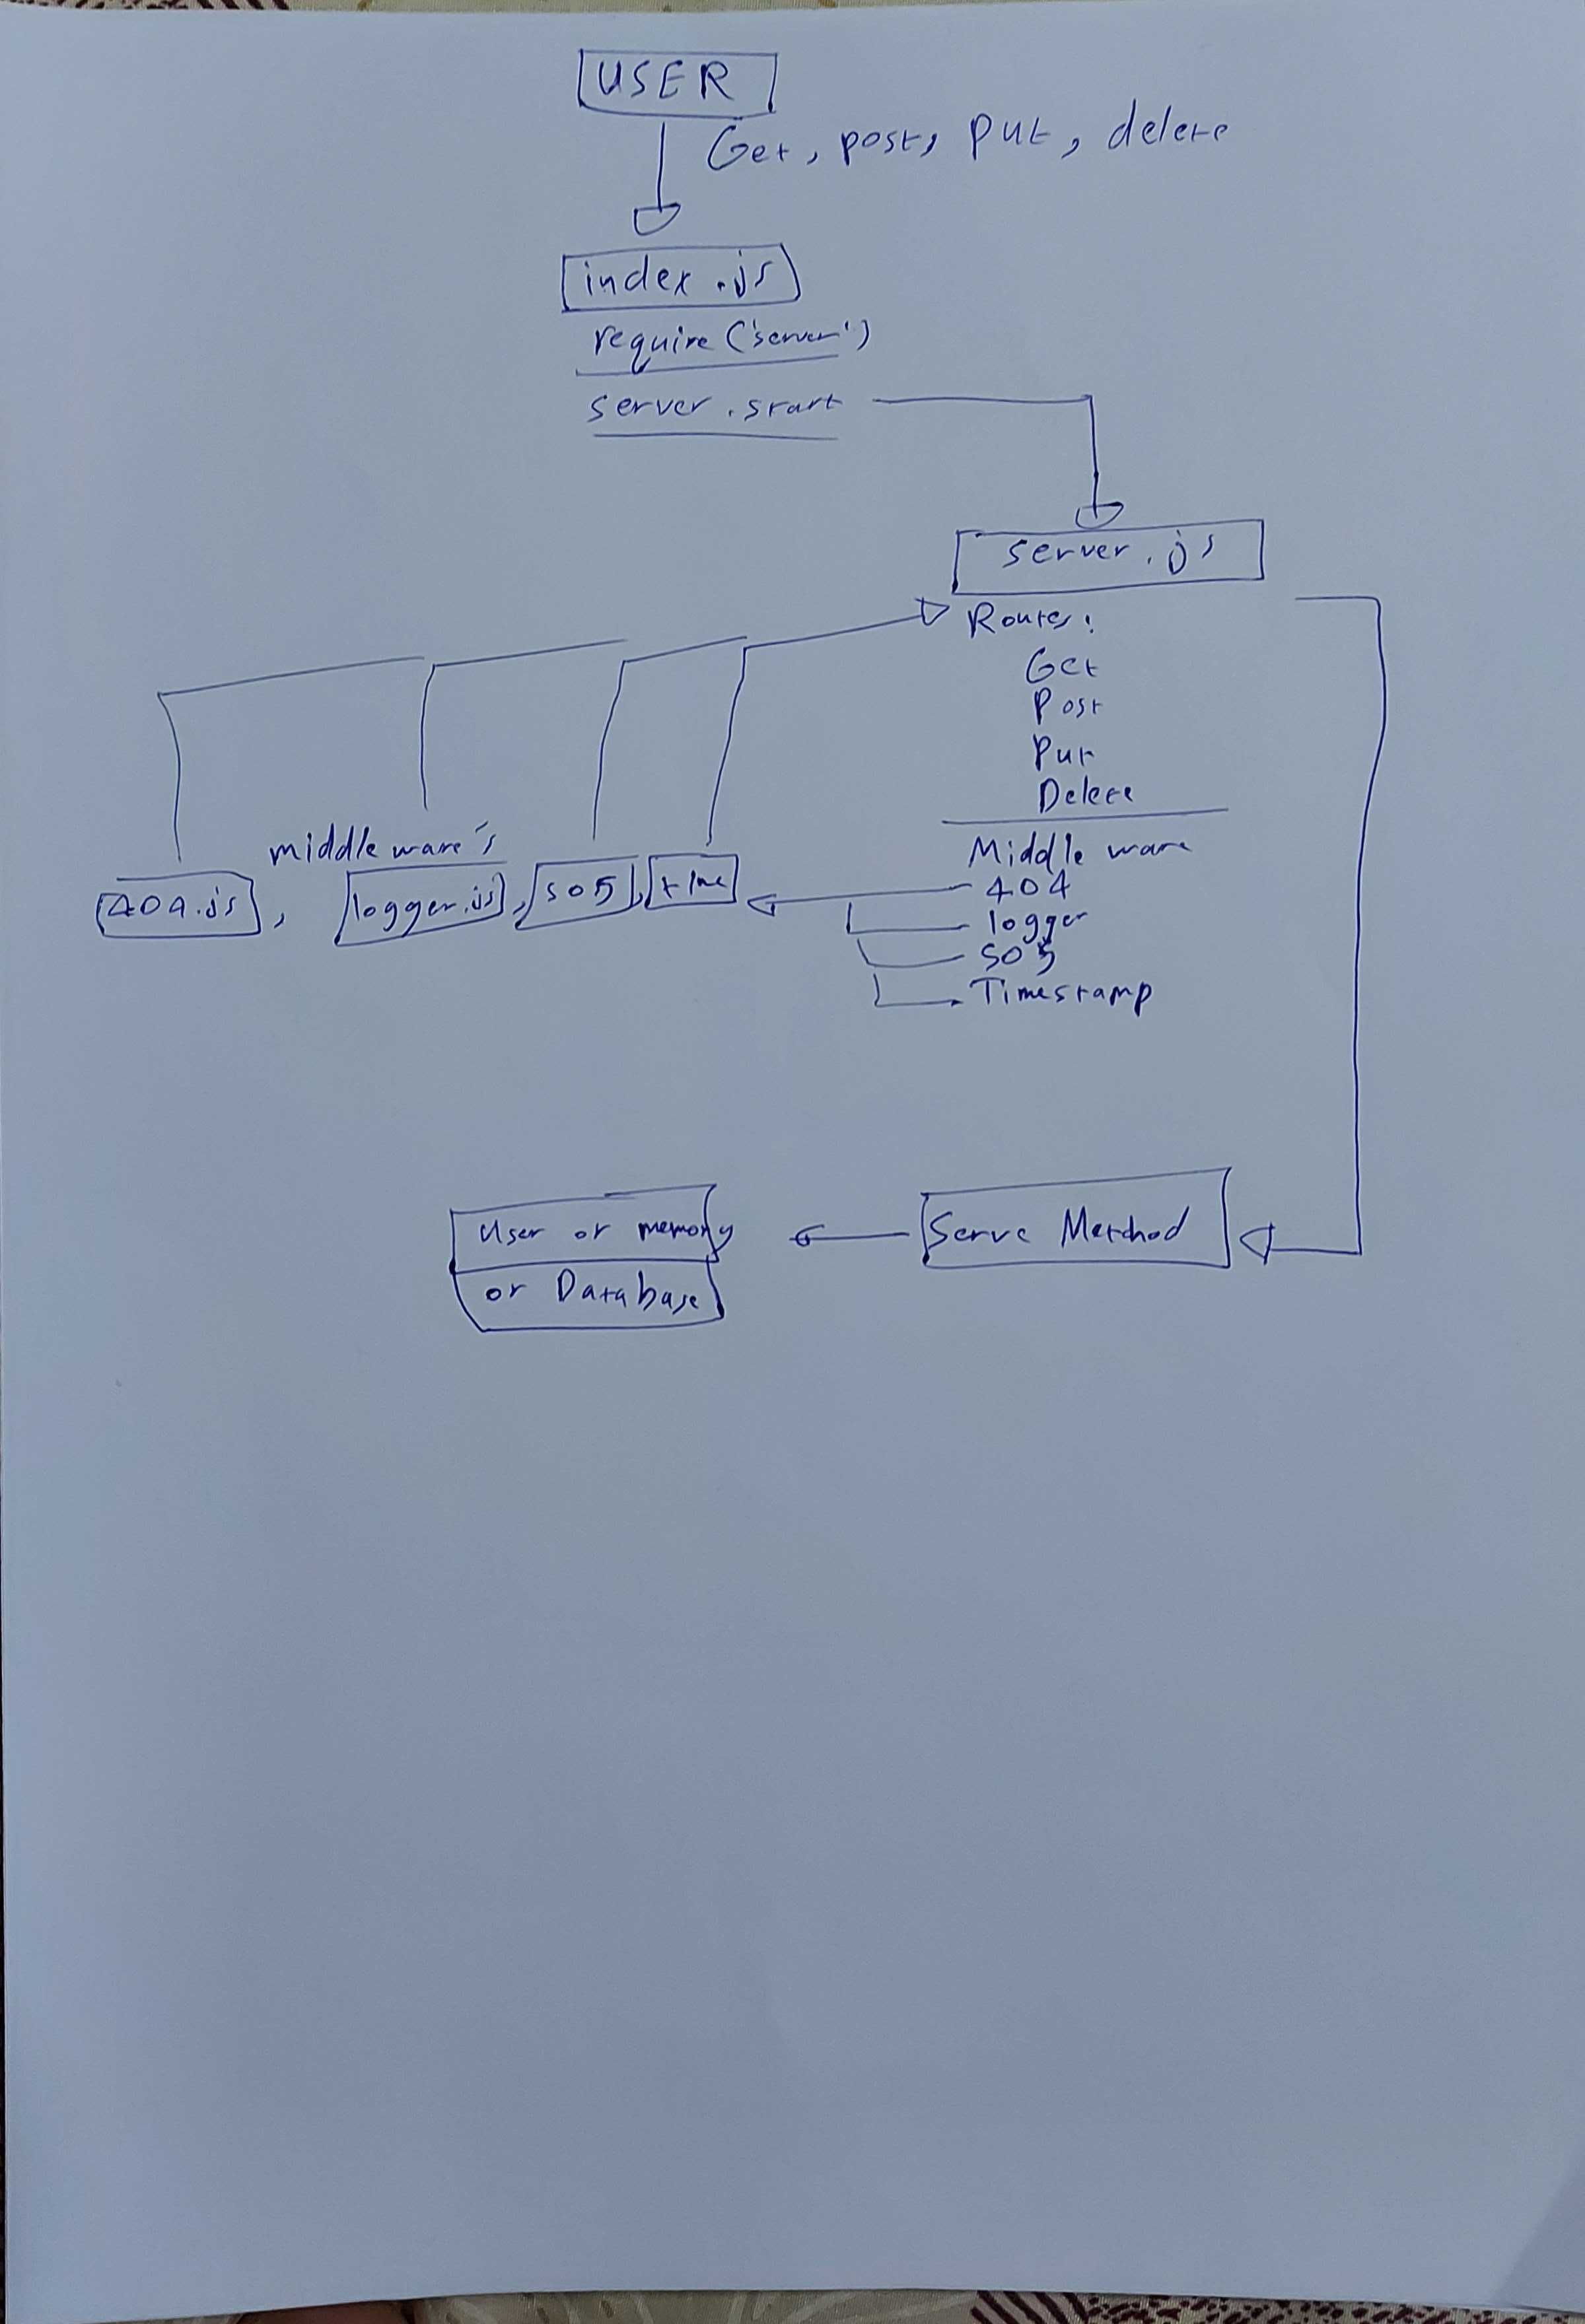 USER
Get, post, put, delete
index.js
require('server')
server.start
server.js
Routes:
Get
Post
Put
Delete
Middle ware
404
logger
505
Timestamp
middle ware's
404.js, logger.js, 505, time
Serve Method
User or memory
or Database